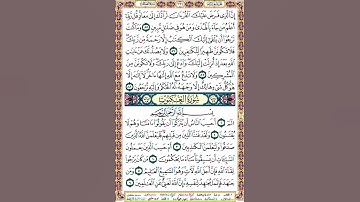 إِنَّ الَّذِي فَرَضَ عَلَيْكَ الْقُرْءَانَ لَرَادُّكَ إِلَىٰ مَعَادٍ قُل رَّبِّي
أَعْلَمُ مَن جَاءَ بِالْهُدَىٰ وَمَنْ هُوَ فِي ضَلَٰلٍ مُّبِينٍ وَمَا كُنتَ
تَرْجُوا أَن يُلْقَىٰ إِلَيْكَ الْكِتَٰبُ إِلَّا رَحْمَةً مِّن رَّبِّكَ
فَلَا تَكُونَنَّ ظَهِيرًا لِّلْكَٰفِرِينَ وَلَا يَصُدُّنَّكَ عَنْ ءَايَٰتِ
اللَّهِ بَعْدَ إِذْ أُنزِلَتْ إِلَيْكَ وَادْعُ إِلَىٰ رَبِّكَ وَلَا تَكُونَنَّ مِنَ
الْمُشْرِكِينَ وَلَا تَدْعُ مَعَ اللَّهِ إِلَٰهًا ءَاخَرَ لَا إِلَٰهَ إِلَّا هُوَ
كُلُّ شَيْءٍ هَالِكٌ إِلَّا وَجْهَهُ لَهُ الْحُكْمُ وَإِلَيْهِ تُرْجَعُونَ
سُورَةُ الْعَنكَبُوتِ
بِسْمِ اللَّهِ الرَّحْمَٰنِ الرَّحِيمِ
الم أَحَسِبَ النَّاسُ أَن يُتْرَكُوا أَن يَقُولُوا ءَامَنَّا وَهُمْ لَا
يُفْتَنُونَ وَلَقَدْ فَتَنَّا الَّذِينَ مِن قَبْلِهِمْ فَلَيَعْلَمَنَّ اللَّهُ الَّذِينَ
صَدَقُوا وَلَيَعْلَمَنَّ الْكَٰذِبِينَ أَمْ حَسِبَ الَّذِينَ يَعْمَلُونَ
السَّيِّـَٔاتِ أَن يَسْبِقُونَا سَاءَ مَا يَحْكُمُونَ مَن كَانَ يَرْجُوا
لِقَاءَ اللَّهِ فَإِنَّ أَجَلَ اللَّهِ لَـَٔاتٍ وَهُوَ السَّمِيعُ الْعَلِيمُ وَمَن
جَٰهَدَ فَإِنَّمَا يُجَٰهِدُ لِنَفْسِهِ إِنَّ اللَّهَ لَغَنِيٌّ عَنِ الْعَٰلَمِينَ